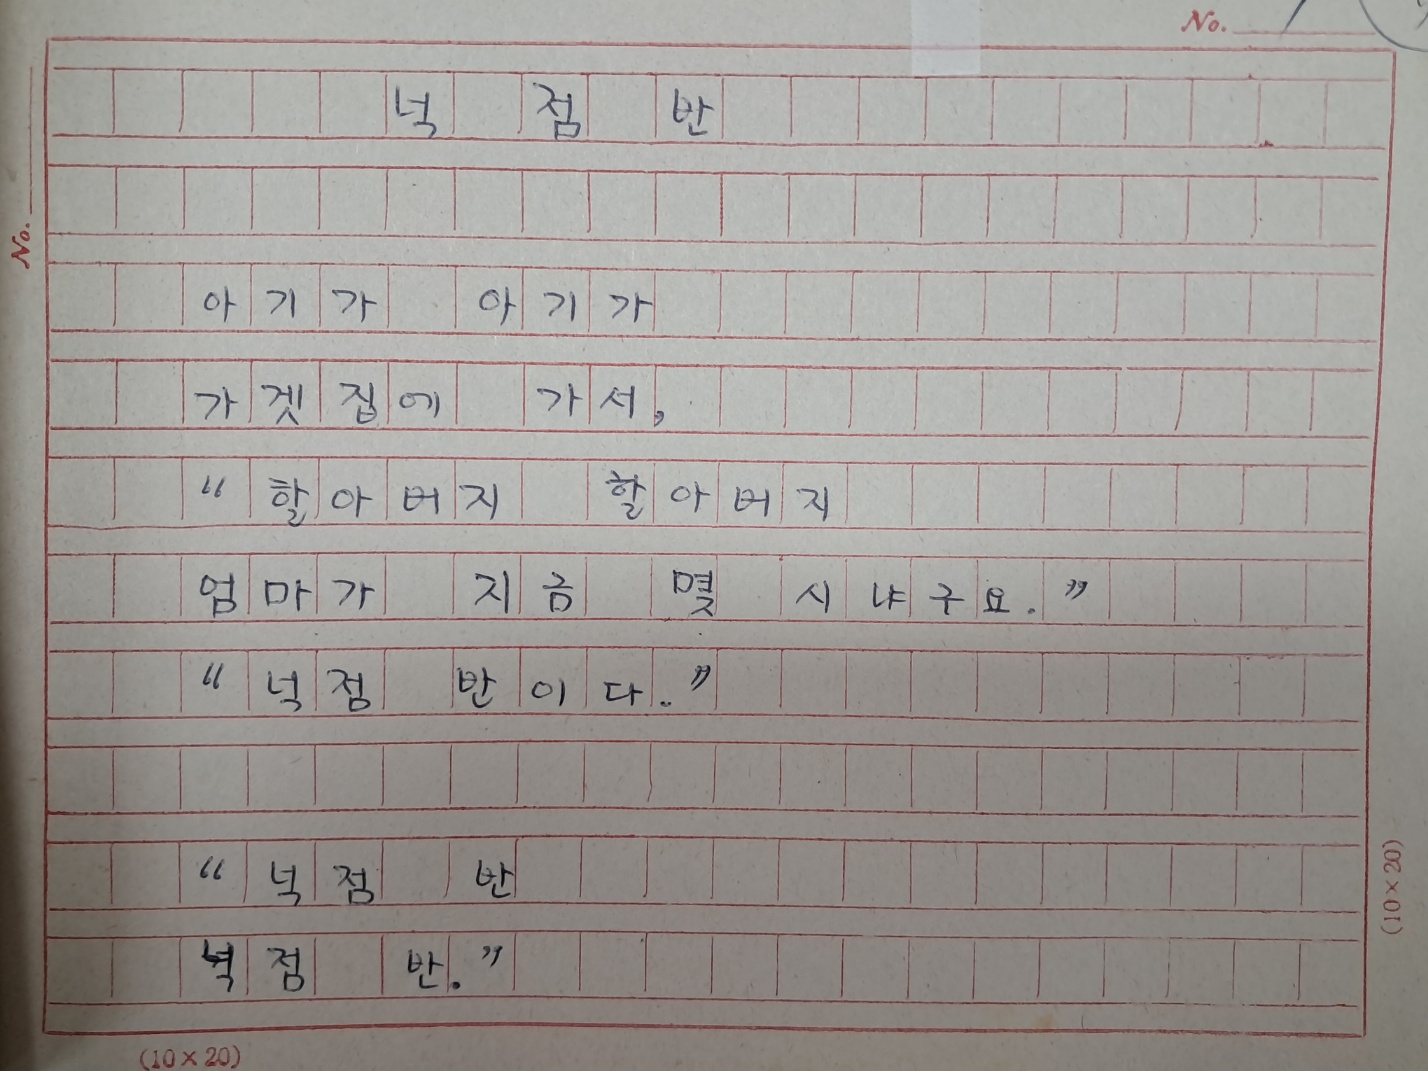 No.
넉 점 반
No.
아기가 아기가
가겟집에 가서,
“할아버지 할아버지
엄마가 지금 몇 시냐구요.”
“넉점 반이다.”
“넉점 반
넉점 반.”
(10×20)
(10×20)